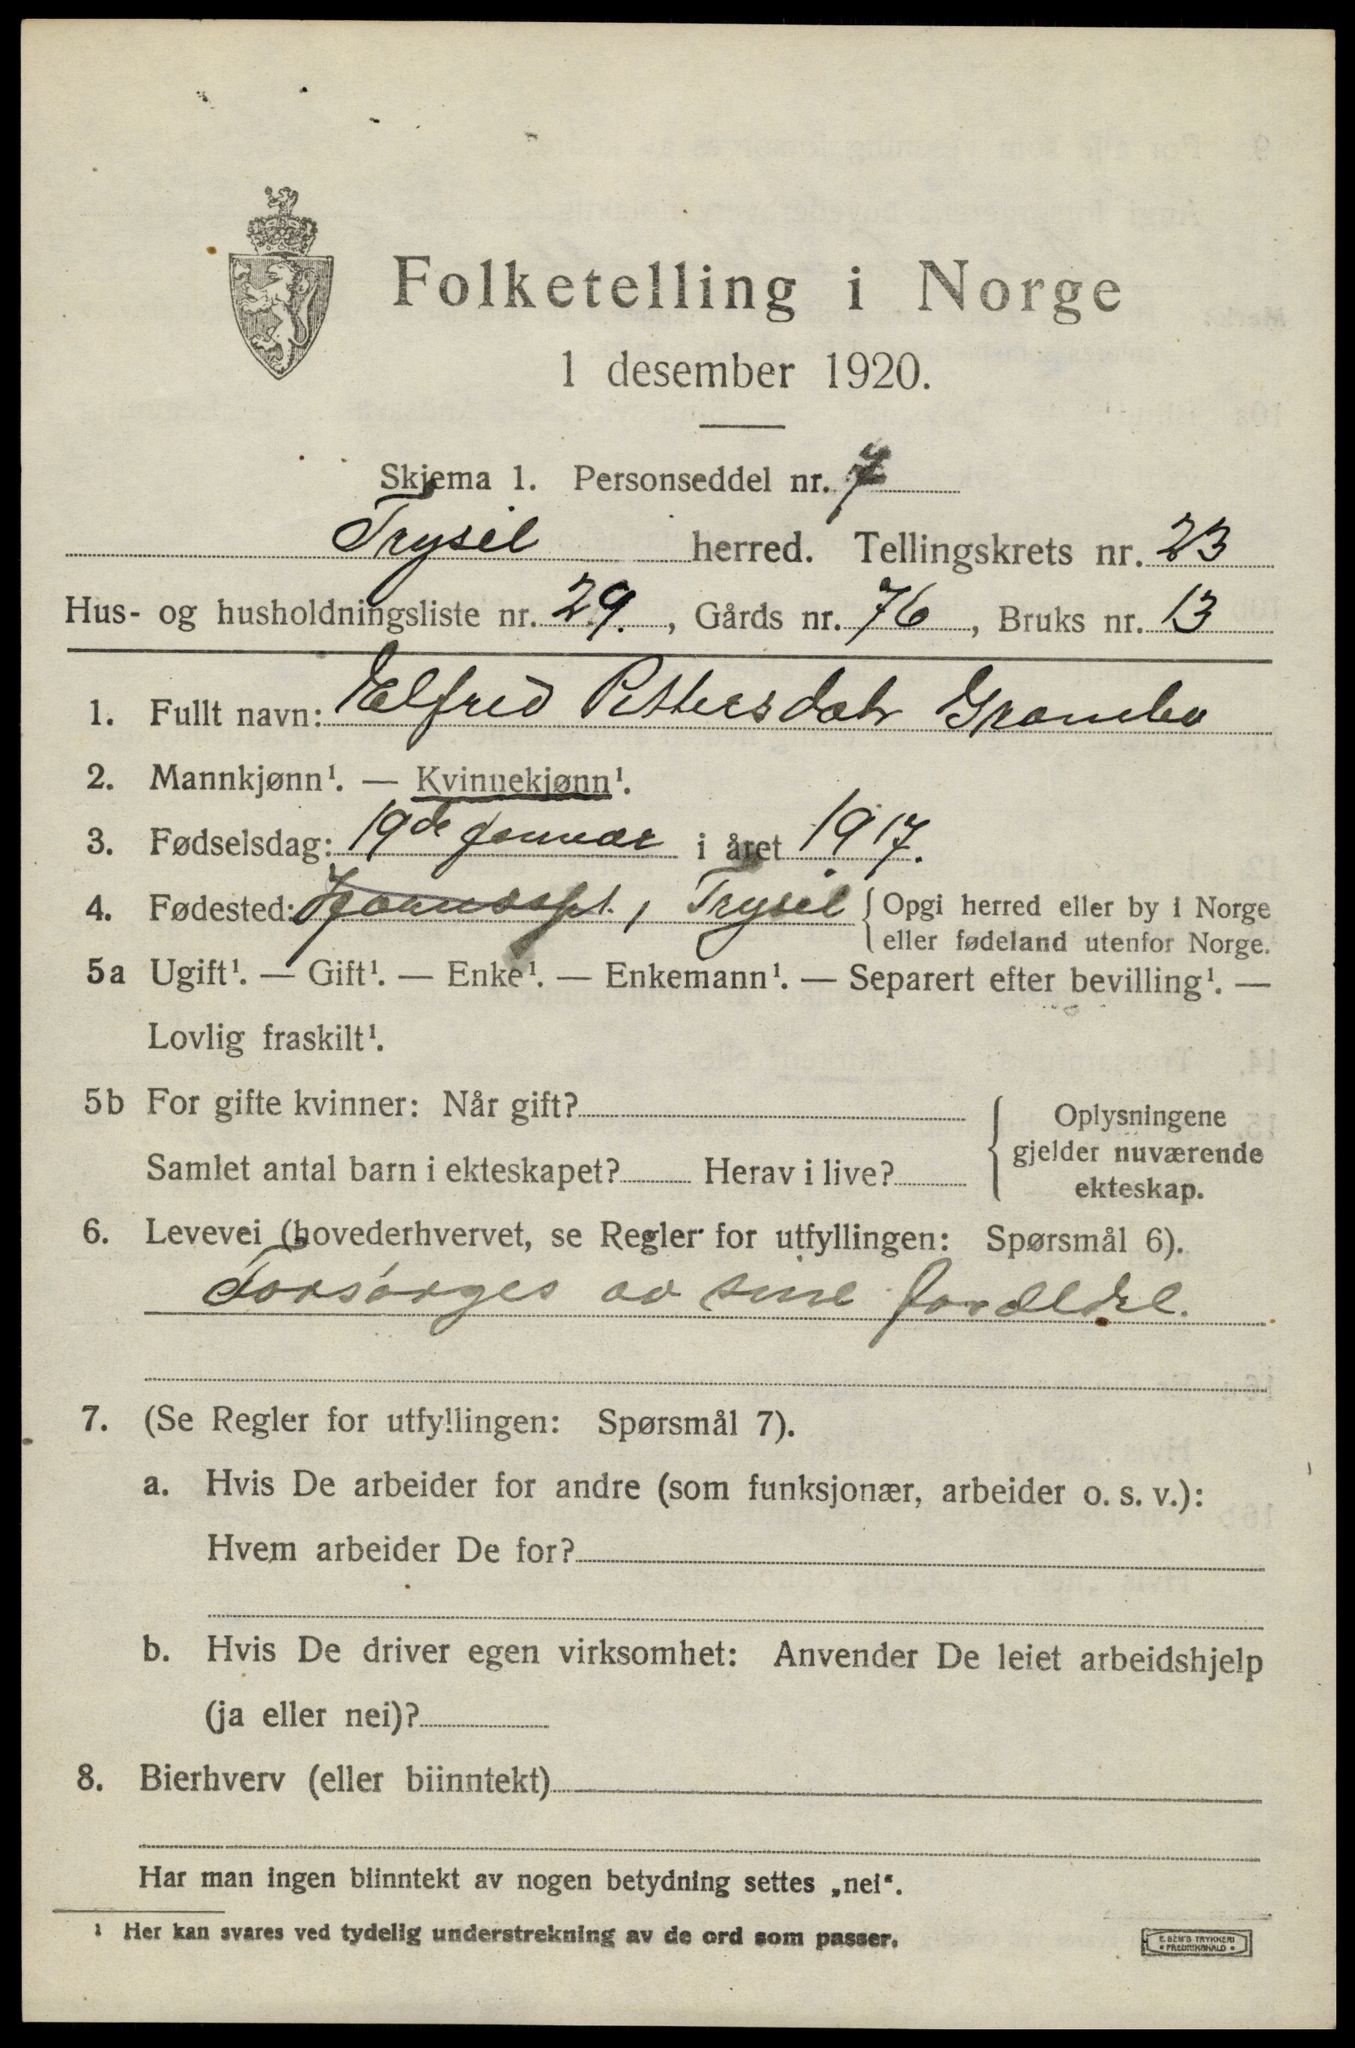 Folketelling i Norge
1 desember 1920.
Skjema 1. Personseddel nr. 7
Trysil herred. Tellingskrets nr. 23
Hus- og husholdningsliste nr. 29. , Gårds nr. 76 , Bruks nr. 13
1. Fullt navn: Elfrid Pettersdatr Grambo
2. Mannkjønn¹. — Kvinnekjønn¹.
3. Fødselsdag: 19de januar i året 1917.
4. Fødested: , Trysil { Opgi herred eller by i Norge
eller fødeland utenfor Norge.
5a Ugift¹. — Gift¹. — Enke¹. — Enkemann¹. — Separert efter bevilling¹. —
Lovlig fraskilt¹.
5b For gifte kvinner: Når gift?
Samlet antal barn i ekteskapet? Herav i live?
Oplysningene
gjelder nuværende
ekteskap.
6. Levevei (hovederhvervet, se Regler for utfyllingen: Spørsmål 6).
Forsørges av sine foreldre.
7. (Se Regler for utfyllingen: Spørsmål 7).
a. Hvis De arbeider for andre (som funksjonær, arbeider o. s. v.):
Hvem arbeider De for?
b. Hvis De driver egen virksomhet: Anvender De leiet arbeidshjelp
(ja eller nei)?
8. Bierhverv (eller biinntekt)
Har man ingen biinntekt av nogen betydning settes „nei“.
¹ Her kan svares ved tydelig understrekning av de ord som passer.
E. SEM'S TRYKKERI
FREDRIKSHALD